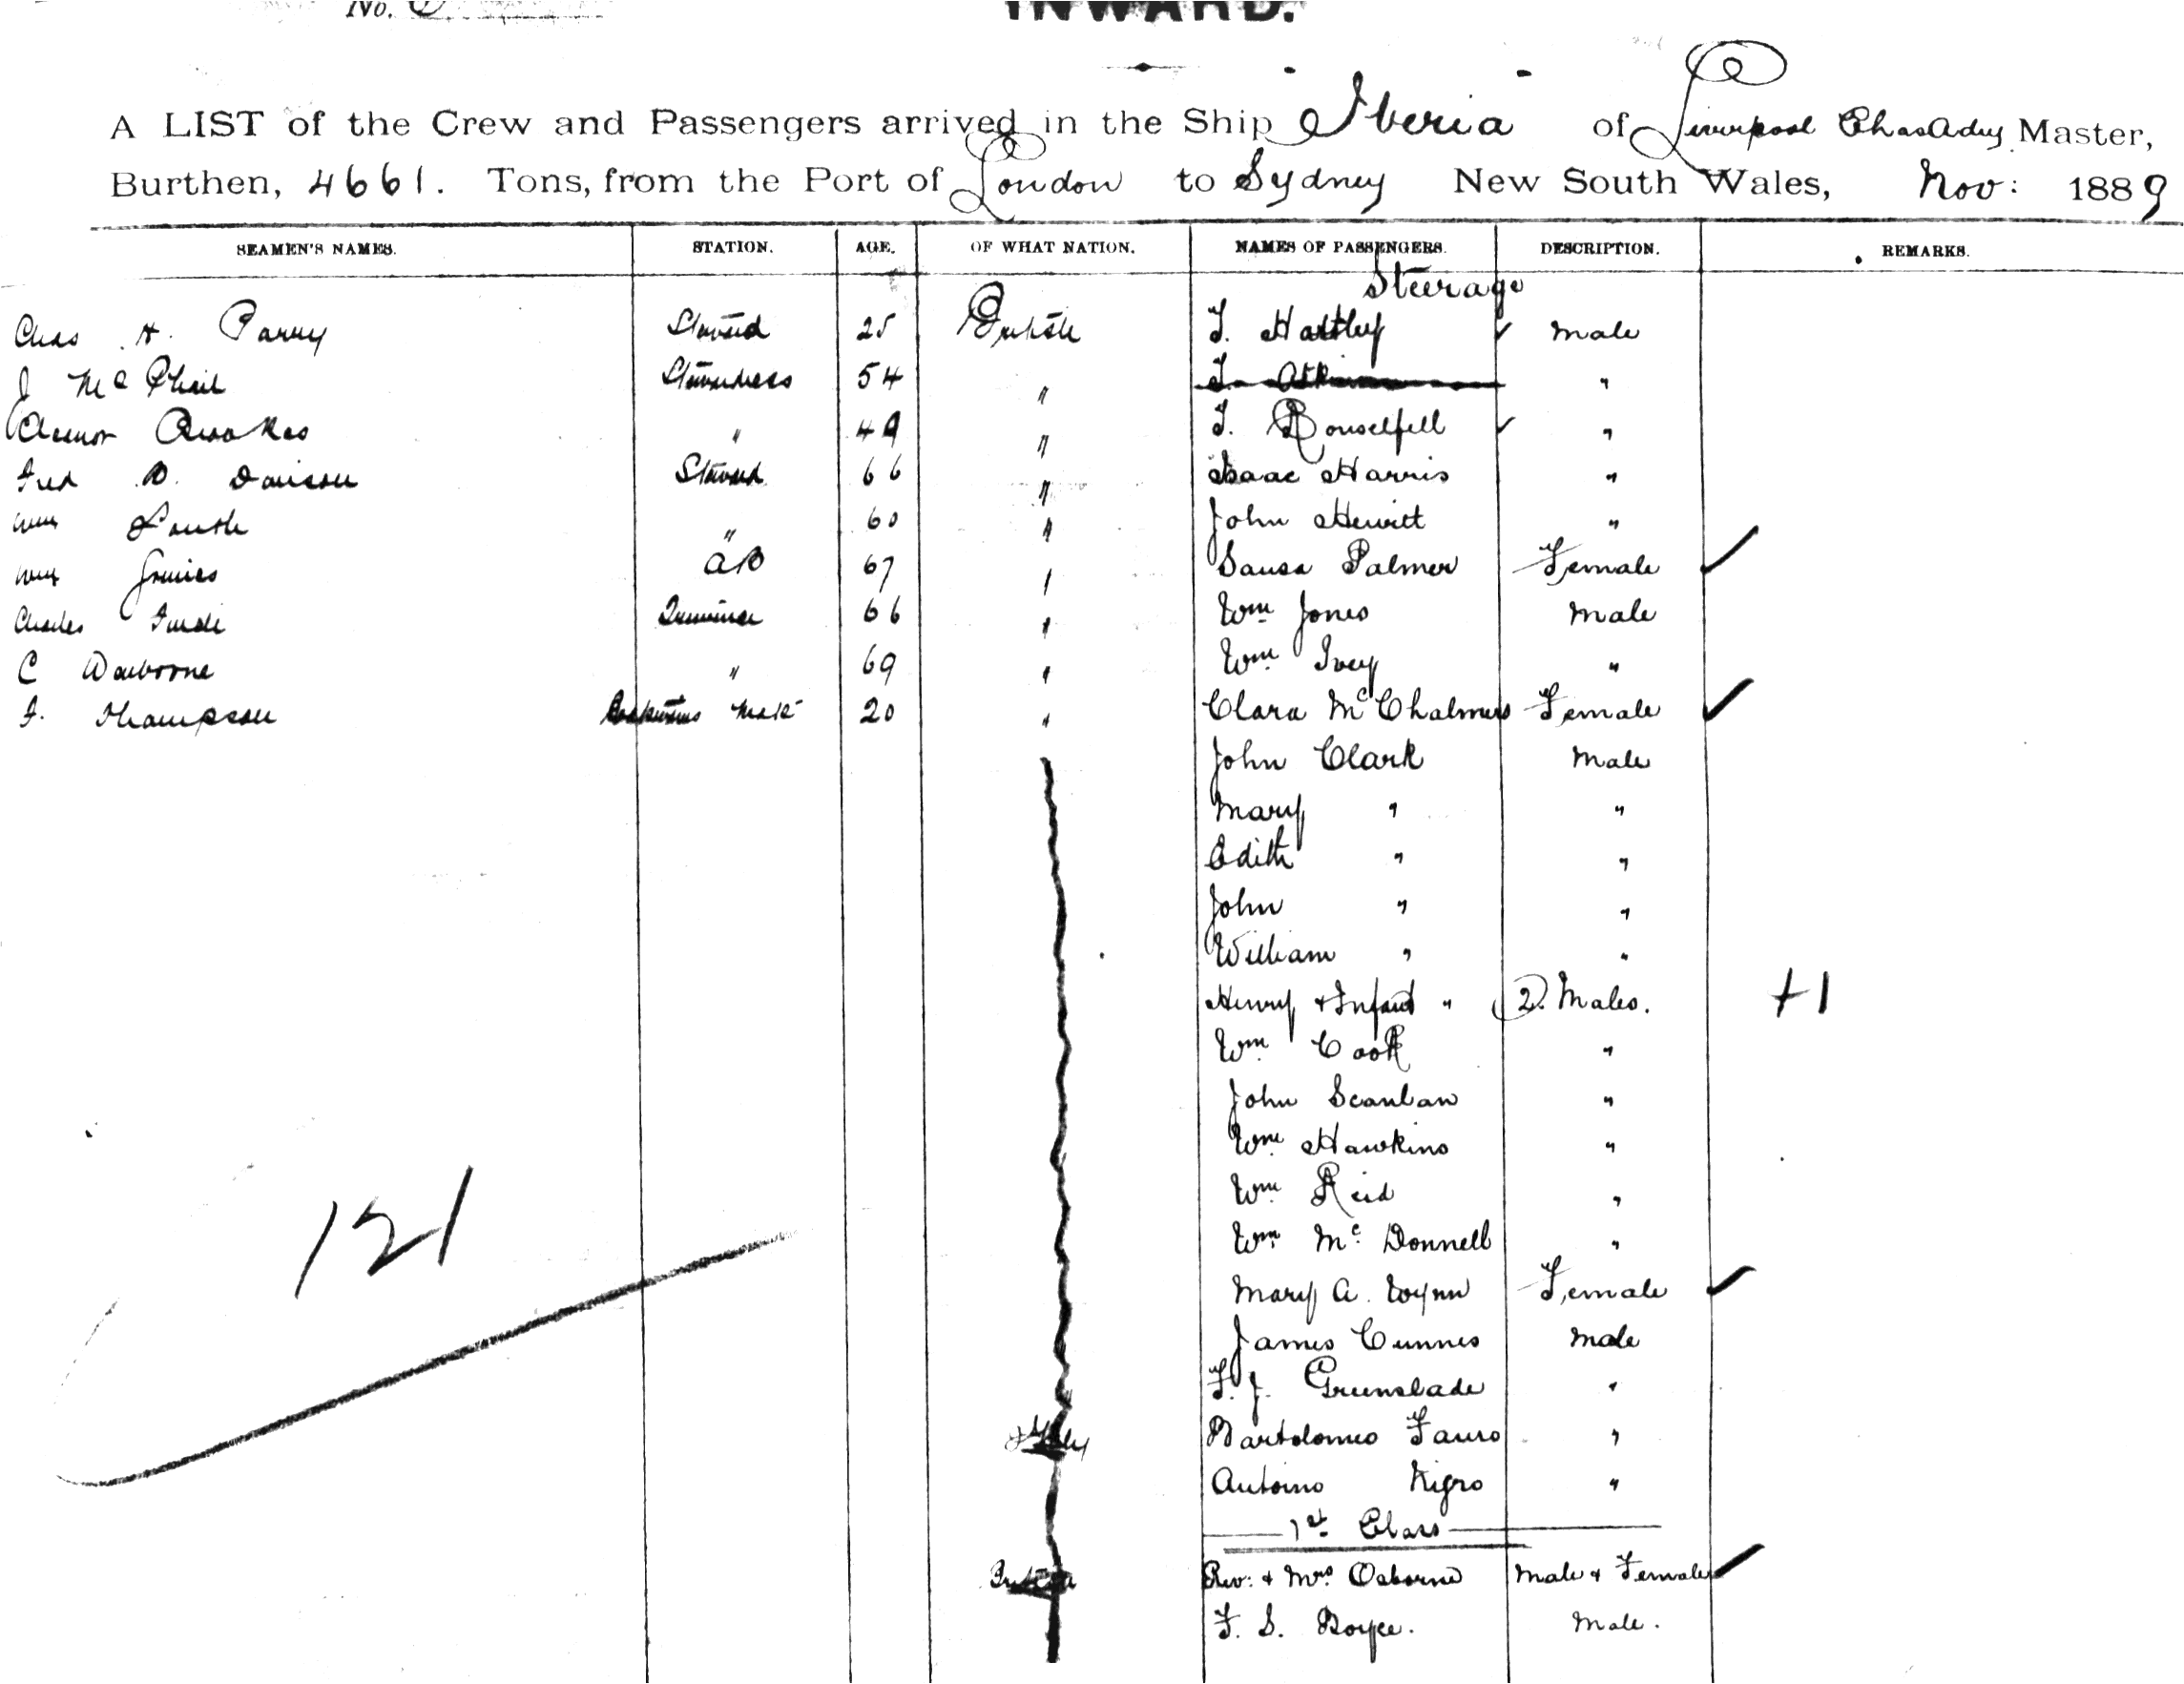 No.
INWARD.
A LIST of the Crew and Passengers arrived in the Ship Iberia of Liverpool Chas Adey Master,
Burthen, 4661. Tons, from the Port of London to Sydney New South Wales, Nov: 1889
SEAMEN'S NAMES. STATION. AGE. OF WHAT NATION. NAMES OF PASSENGERS. DESCRIPTION. REMARKS.
Steerage
Chas H. Parry Steward 25 British T. Hartley ✓ Male
J McPhail Stewardess 54 " "
Eleanor Crookes " 49 " T. Bonselfell ✓ "
Fred D. Davison Steward 66 " Isaac Harris "
Wm " 60 " John Hewitt "
Wm AB 67 " Palmer Female ✓
Charles 66 " Wm Jones Male
C " 69 " Wm Ivey "
F. Thompson 20 " Clara McChalmers Female ✓
John Clark Male
Mary " "
Edith " "
John " "
William " "
Henry & Infant " 2. Males. +1
Wm Cook "
John Scanlan "
Wm Hawkins "
Wm Reid "
Wm Mc Donnell "
Mary A. Wynn Female ✓
James Cunnes Male
F. J. Greenslade "
Italy Bartolomeo Fauro "
Antoino Nigro "
1st Class
British Rev: & Mrs Osborne Male & Female ✓
F. S. Boyce. Male.
121